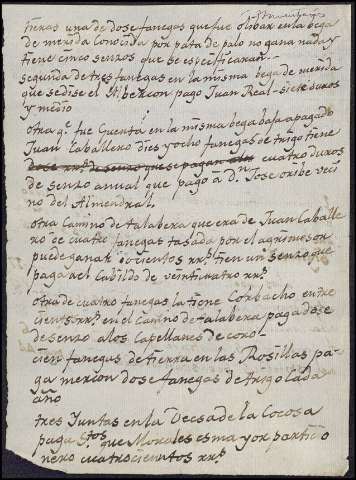 tieras una de dose fanegas que fue olibar en la bega
de merida Conocida por pata de palo no gana nada y
tiene cinco sensos que se espesificaran
segunda de tres fanegas en la misma bega de merida
que se dise el Mibercon pago Juan Real siete duros
y medio
otra q.e fue Cuenta en la misma bega baja a pagado
Juan Caballero dies y ocho fanegas de trigo tiene
dose rr.s de senso que se pagan cuatro duros
de senso anual que pago á D.n Jose oribe veci
no del Almendral
otra Camino de talabera que era de Juan Caballe
ro de cuatro fanegas tasada por el agrimensor
puede ganar docientos rr.s tien un senso que
paga ael Cabildo de veinticuatro rr.s
otra de cuatro fanegas la tiene Corbacho en tre
cientos rr.s en el camino de talabera paga dose
de senso a los Capellanes de coro
cien fanegas de tierra en las Rosillas pa
ga mericon dose fanegas de trigo cada
año
tres Juntas en la Decsa de la Cocosa
paga Stos que Morales es mayor partisio
nero cuatrocientos rr.s